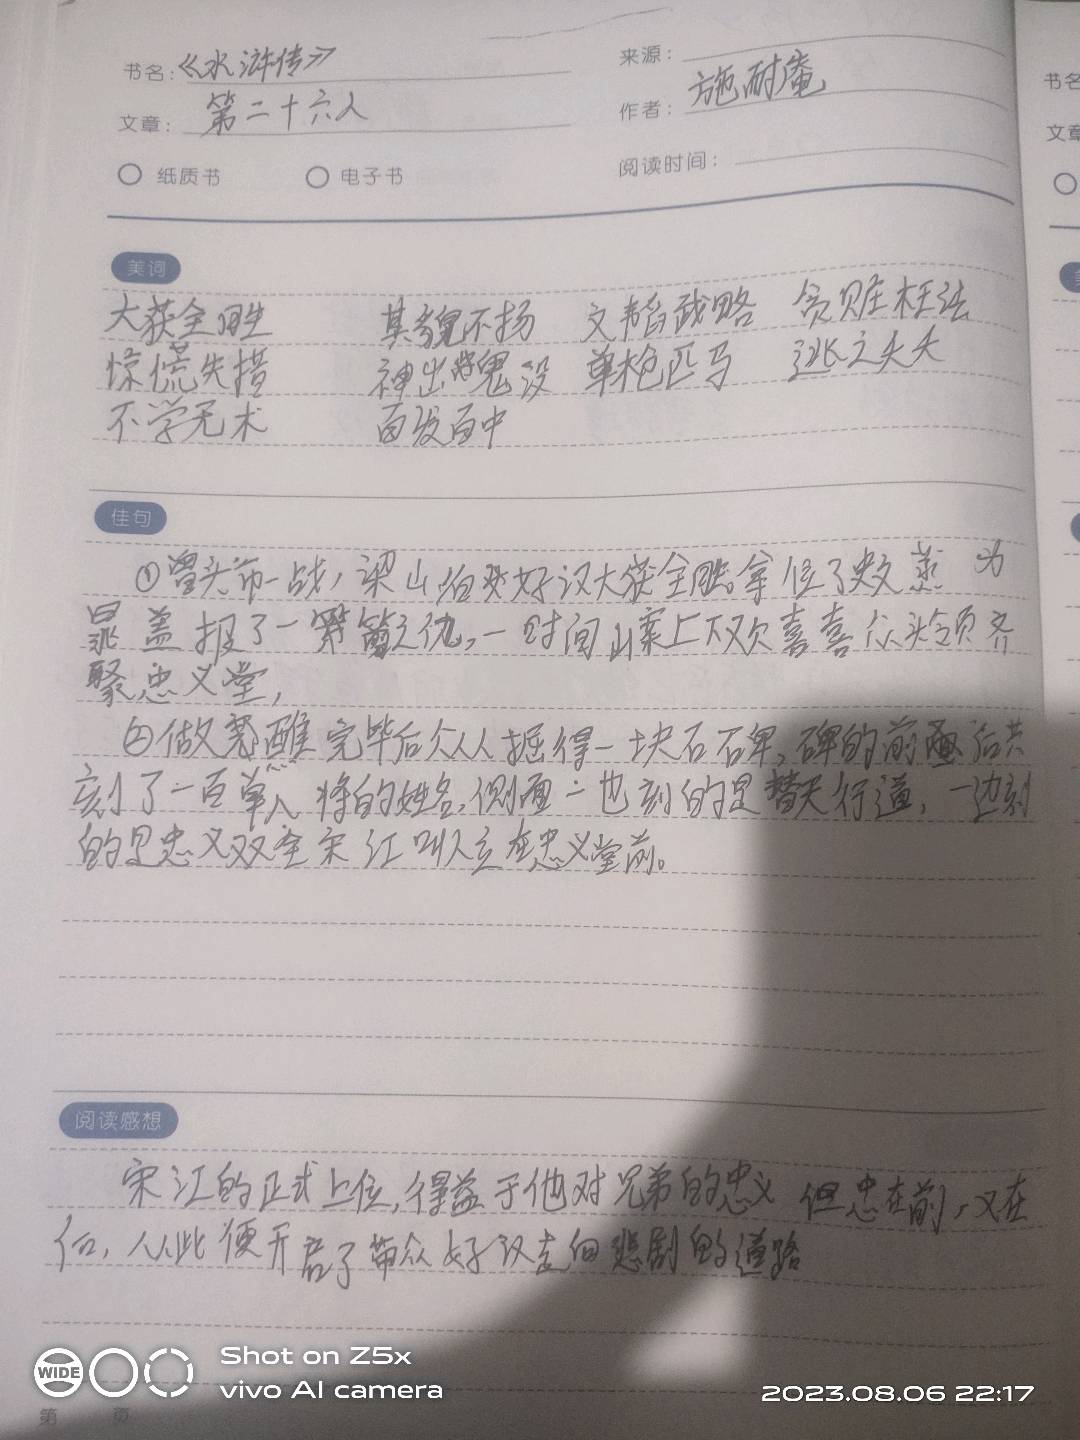 书名：《水浒传》 来源：
文章：第二十六人 作者：施耐庵
纸质书 电子书 阅读时间：
书名
文章
美词
大获全胜 其貌不扬 文韬武略 贪赃枉法
惊慌失措 神出鬼没 单枪匹马 逃之夭夭
不学无术 百发百中
佳句
①曾头市一战，梁山泊众好汉大获全胜拿住了史文恭 为
晁盖报了一箭之仇，一时间山寨上下欢喜喜众头领齐
聚忠义堂，
②做完毕后众人掘得一块石石碑，碑的前面后共
刻了一百单八将的姓名，侧面一也刻的是替天行道，一边刻
的是忠义双全宋江叫人立在忠义堂前。
阅读感想
宋江的正式上位，得益于他对兄弟的忠义 但忠在前，义在
后，从此便开启了带众好汉走向悲剧的道路
WIDE
Shot on Z5x
vivo AI camera
2023.08.06 22:17
第 页